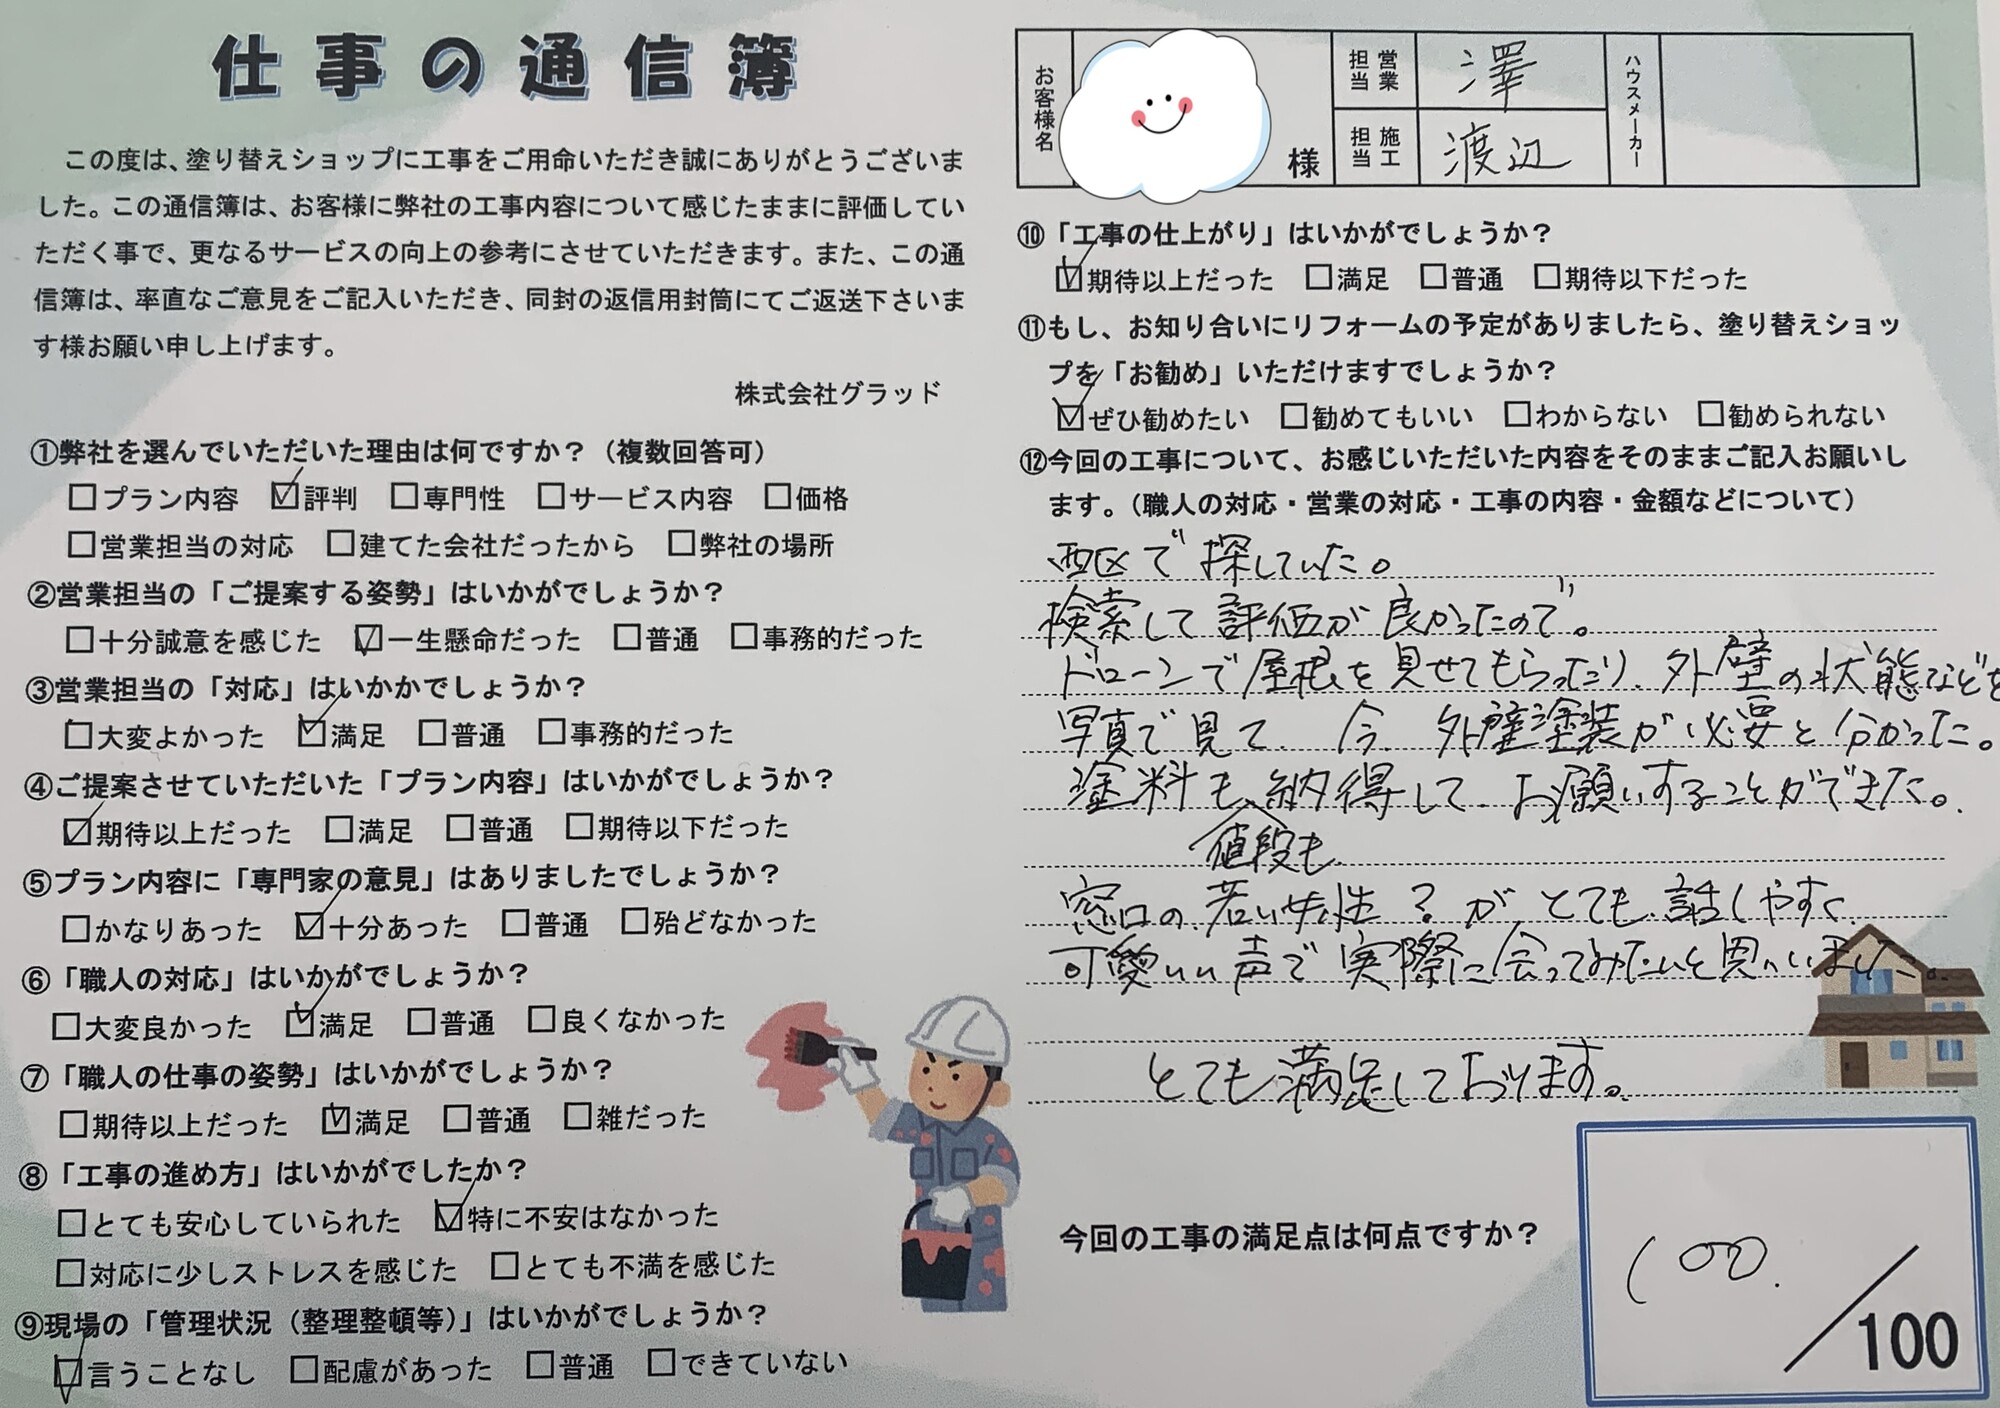 仕事の通信簿
この度は、塗り替えショップに工事をご用命いただき誠にありがとうございま
した。この通信簿は、お客様に弊社の工事内容について感じたままに評価してい
ただく事で、更なるサービスの向上の参考にさせていただきます。また、この通
信簿は、率直なご意見をご記入いただき、同封の返信用封筒にてご返送下さいま
す様お願い申し上げます。
株式会社グラッド
①弊社を選んでいただいた理由は何ですか？（複数回答可）
□プラン内容 ☑評判 □専門性 □サービス内容 □価格
□営業担当の対応 □建てた会社だったから □弊社の場所
②営業担当の「ご提案する姿勢」はいかがでしょうか？
□十分誠意を感じた ☑一生懸命だった □普通 □事務的だった
③営業担当の「対応」はいかかでしょうか？
□大変よかった ☑満足 □普通 □事務的だった
④ご提案させていただいた「プラン内容」はいかがでしょうか？
☑期待以上だった □満足 □普通 □期待以下だった
⑤プラン内容に「専門家の意見」はありましたでしょうか？
□かなりあった ☑十分あった □普通 □殆どなかった
⑥「職人の対応」はいかがでしょうか？
□大変良かった ☑満足 □普通 □良くなかった
⑦「職人の仕事の姿勢」はいかがでしょうか？
□期待以上だった ☑満足 □普通 □雑だった
⑧「工事の進め方」はいかがでしたか？
□とても安心していられた ☑特に不安はなかった
□対応に少しストレスを感じた □とても不満を感じた
⑨現場の「管理状況（整理整頓等）」はいかがでしょうか？
☑言うことなし □配慮があった □普通 □できていない
お客様名 様 営業担当 澤 ハウスメーカー
施工担当 渡辺
⑩「工事の仕上がり」はいかがでしょうか？
☑期待以上だった □満足 □普通 □期待以下だった
⑪もし、お知り合いにリフォームの予定がありましたら、塗り替えショッ
プを「お勧め」いただけますでしょうか？
☑ぜひ勧めたい □勧めてもいい □わからない □勧められない
⑫今回の工事について、お感じいただいた内容をそのままご記入お願いし
ます。（職人の対応・営業の対応・工事の内容・金額などについて）
西区で探していた。
検索して評価が良かったので。
ドローンで屋根を見せてもらったり、外壁の状態などを
写真で見て、今、外壁塗装が必要と分かった。
塗料も納得して、お願いすることができた。
値段も
窓口の若い女性？がとても話しやすく、
可愛いい声で実際に会ってみたいと思いました。
とても満足しております。
今回の工事の満足点は何点ですか？
100.
/100